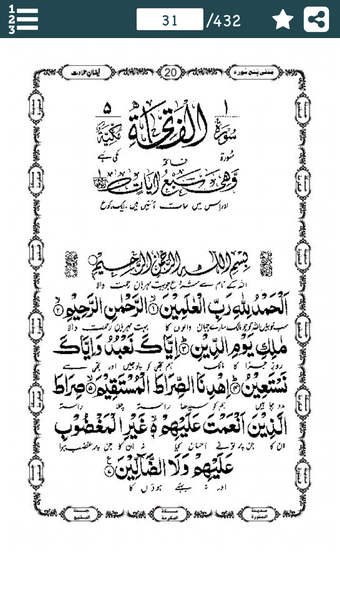 31 /432
فیضانِ عبادت 20 مدنی پنج سورہ
۱ ۵
سُوْرَةُ الْفَاتِحَةِ مَكِّيَّةٌ
سورۂ فاتحہ مکی ہے
وَهِىَ سَبْعُ اٰيَاتٍ
اور اس میں سات آیتیں ہیں ایک رکوع
بِسْمِ اللّٰهِ الرَّحْمٰنِ الرَّحِيْمِ
اللہ کے نام سے شروع جو بہت مہربان رحمت والا
اَلْحَمْدُ لِلّٰهِ رَبِّ الْعٰلَمِيْنَ ۙ﴿۱﴾ الرَّحْمٰنِ الرَّحِيْمِ ۙ﴿۲﴾
سب خوبیاں اللہ کو جو مالک سارے جہان والوں کا بہت مہربان رحمت والا
مٰلِكِ يَوْمِ الدِّيْنِ ؕ﴿۳﴾ اِيَّاكَ نَعْبُدُ وَ اِيَّاكَ
روزِ جزا کا مالک ہم تجھی کو پوجیں اور تجھی سے
نَسْتَعِيْنُ ؕ﴿۴﴾ اِهْدِنَا الصِّرَاطَ الْمُسْتَقِيْمَ ۙ﴿۵﴾ صِرَاطَ
مدد چاہیں ہم کو سیدھا راستہ چلا راستہ
الَّذِيْنَ اَنْعَمْتَ عَلَيْهِمْ ۙ۬﴿۶﴾ غَيْرِ الْمَغْضُوْبِ
ان کا جن پر تو نے احسان کیا نہ ان کا جن پر غضب ہوا
عَلَيْهِمْ وَ لَا الضَّآلِّيْنَ ﴿۷﴾
اور نہ بہکے ہوؤں کا